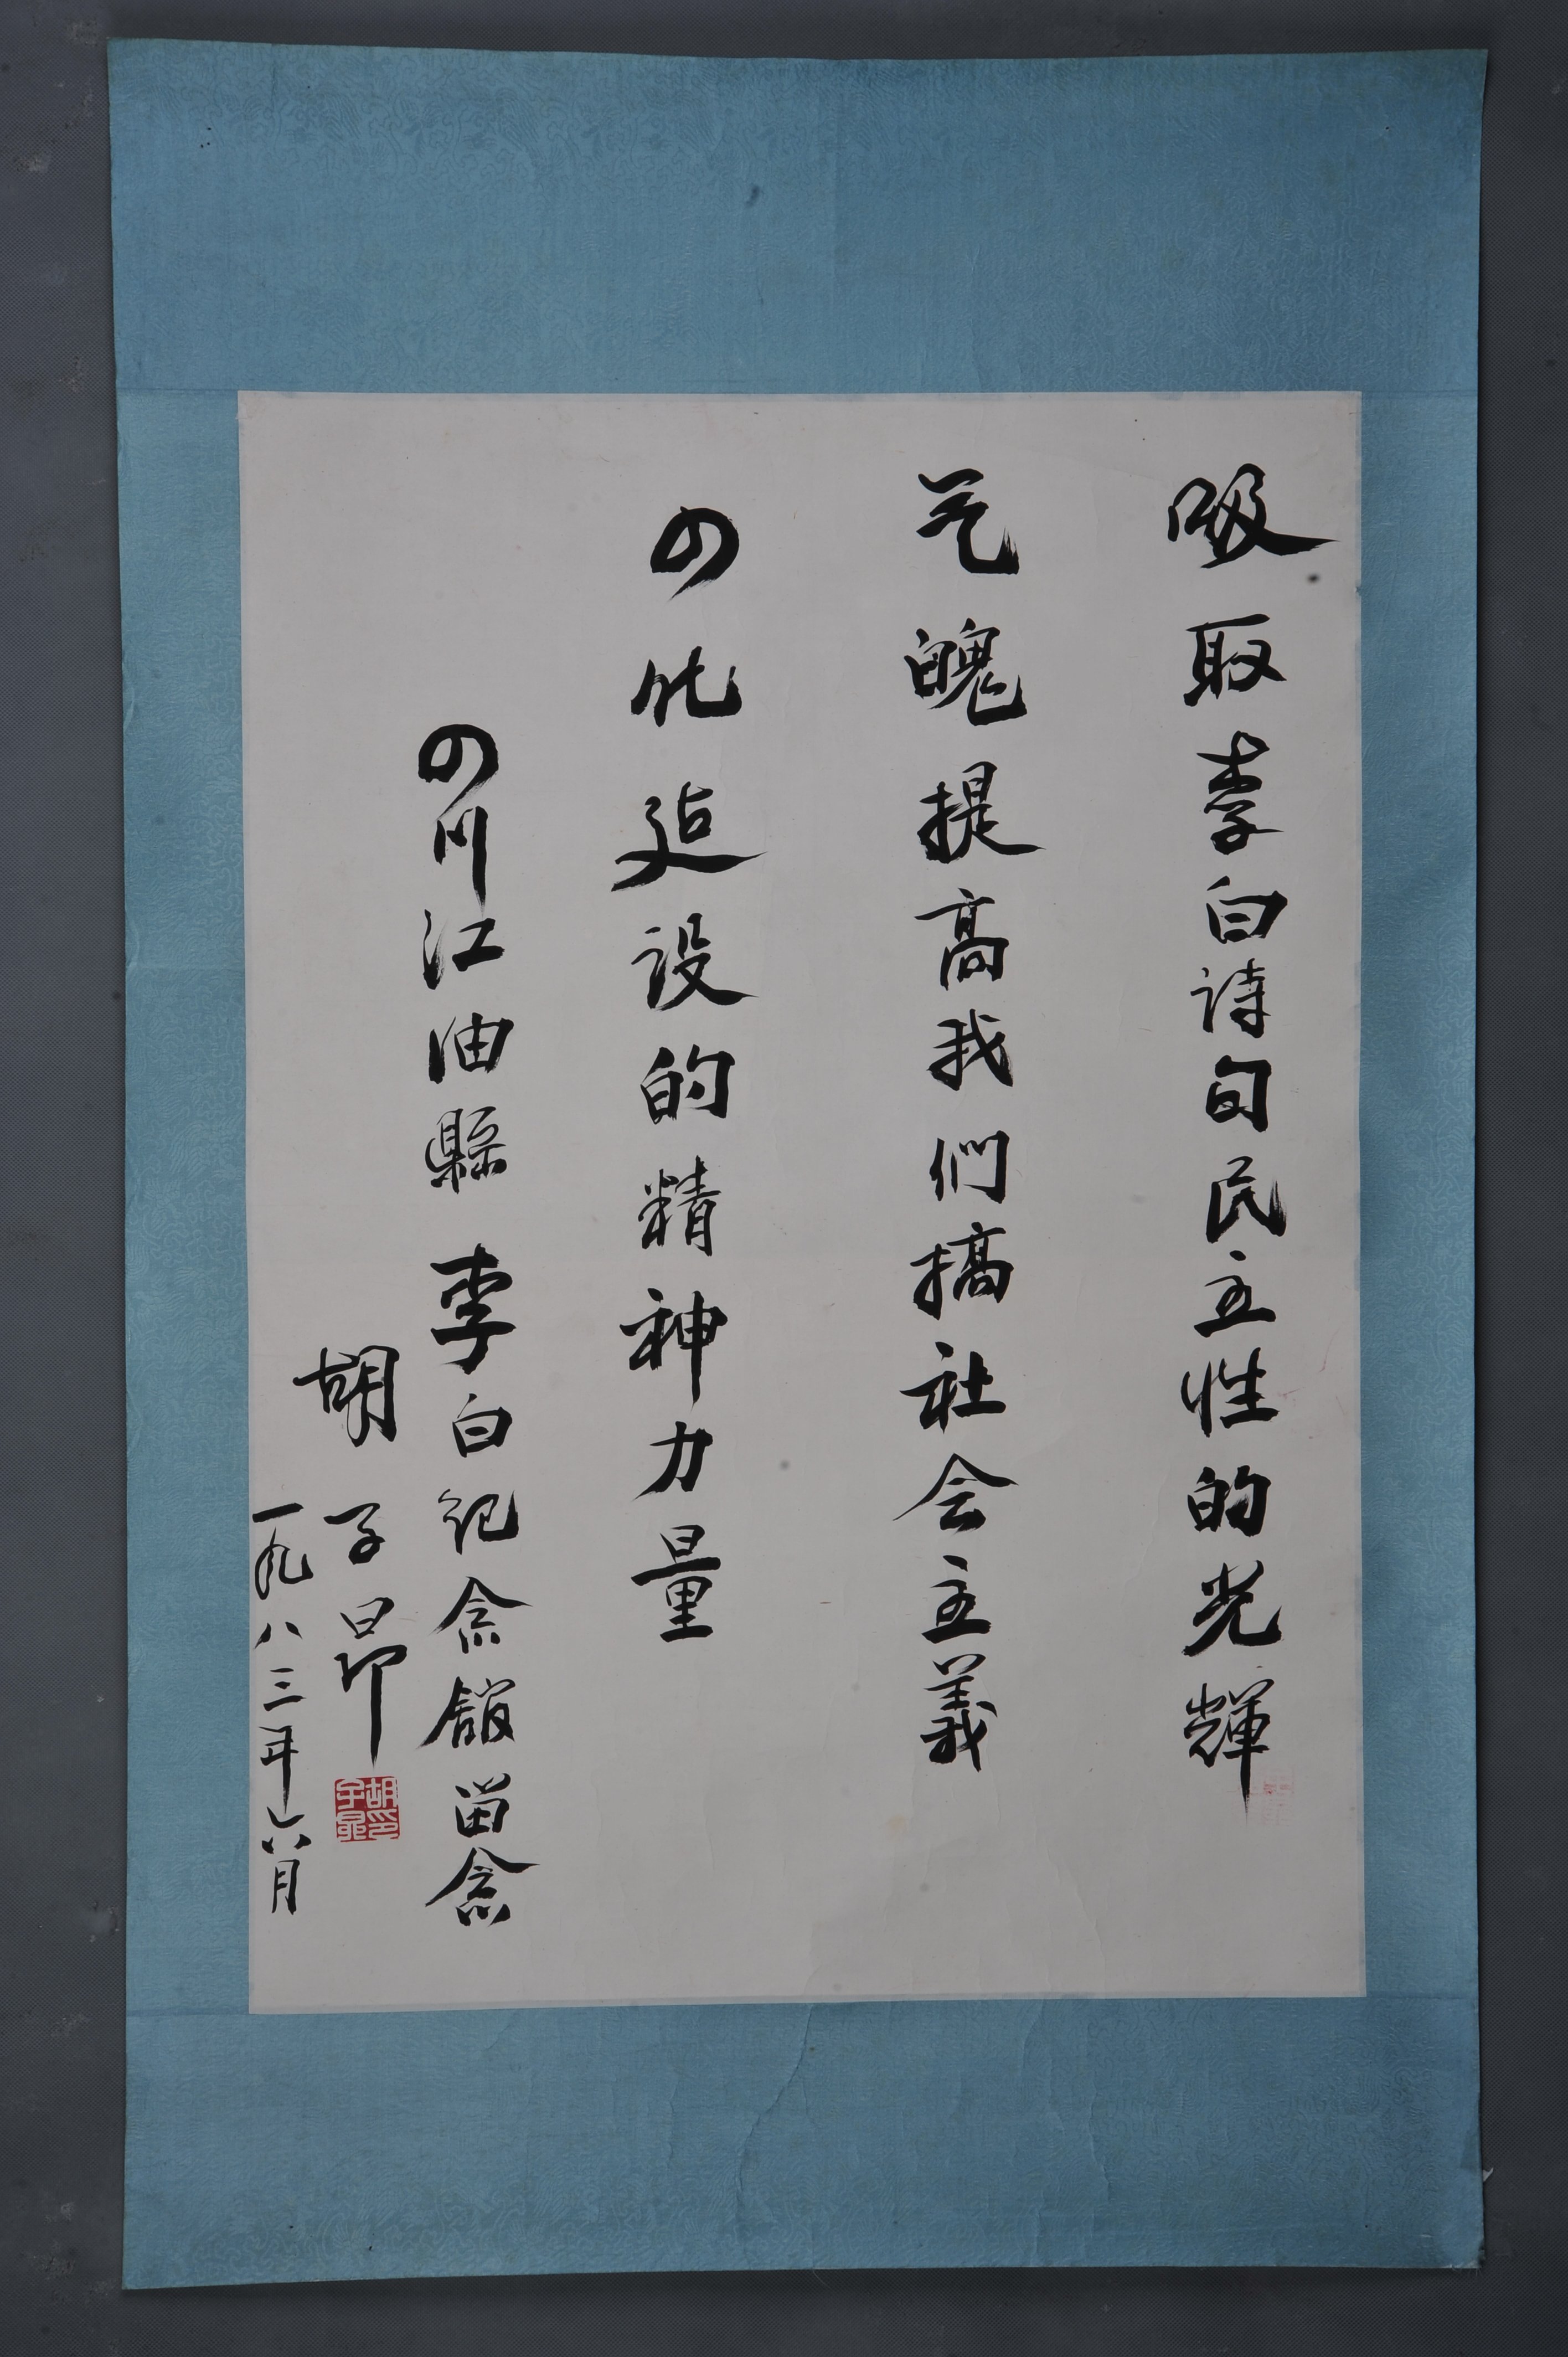 吸取李白诗句民主性的光輝
气魄提高我们搞社会主義
四化建设的精神力量
四川江油縣李白纪念館留念
胡子昂
一九八三年六月
胡子昂印